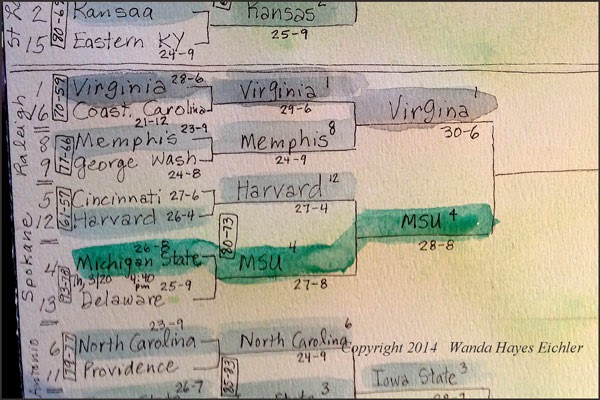 2 Kansaa Kansas 2
15 Eastern KY 25-9
24-9
Raleigh
1 Virginia 28-6 Virginia 1
70-59
16 Coast. Carolina 29-6 Virgina 1
21-12 30-6
8 Memphis 23-9 Memphis 8
77-66
9 George Wash 24-9
24-8
Spokane
5 Cincinnati 27-6 Harvard 12
61-57
12 Harvard 26-4 27-4
80-73 MSU 4
26-8 28-8
4 Michigan State MSU 4
93-78 Th, 3/20 4:40 pm 25-9 27-8
13 Delaware
23-9
Antonio
6 North Carolina North Carolina 6
79-77 24-9
Copyright 2014 Wanda Hayes Eichler
11 Providence 85-83
Iowa State 3
26-7 State 3